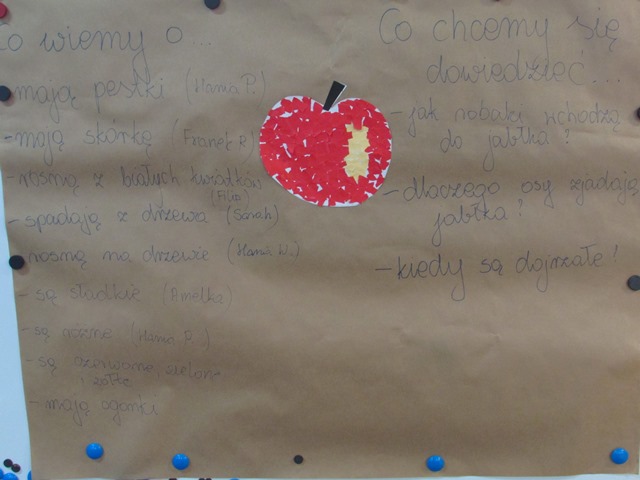 Co wiemy o...
- mają pestki (Hania P.)
- mają skórkę (Franek R)
- rosną z białych kwiatków
(Filip)
- spadają z drzewa (Sarah)
- rosną na drzewie (Hania W.)
- są słodkie (Amelka)
- są różne (Hania P.)
- są czerwone, zielone
i żółte
- mają ogonki
Co chcemy się
dowiedzieć...
- jak robaki wchodzą
do jabłka?
- dlaczego osy zjadają
jabłka?
- kiedy są dojrzałe?